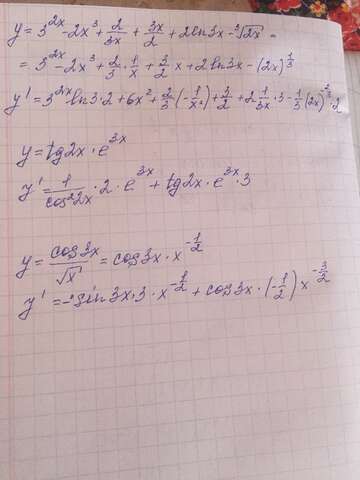 y = 3^{2x} - 2x³ + 2/3x + 3x/2 + 2ln3x - ³√2x =
= 3^{2x} - 2x³ + 2/3 · 1/x + 3/2 x + 2ln3x - (2x)^{1/3}
y' = 3^{2x} ln3 · 2 + 6x² + 2/3 (-1/x²) + 3/2 + 2 1/3x · 3 - 1/3 (2x)^{-2/3} · 2
y = tg2x · e^{3x}
y' = 1/cos²2x · 2 · e^{3x} + tg2x · e^{3x} · 3
y = cos3x/√x = cos3x · x^{-1/2}
y' = -sin3x · 3 · x^{-1/2} + cos3x · (-1/2) x^{-3/2}